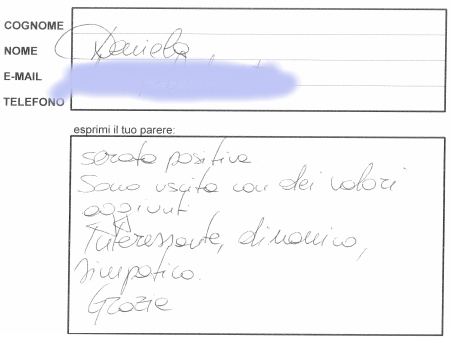 COGNOME
NOME Daniela
E-MAIL
TELEFONO
esprimi il tuo parere:
serata positiva
Sono uscita con dei valori
aggiunti
Interessante, dinamico,
simpatico.
Grazie